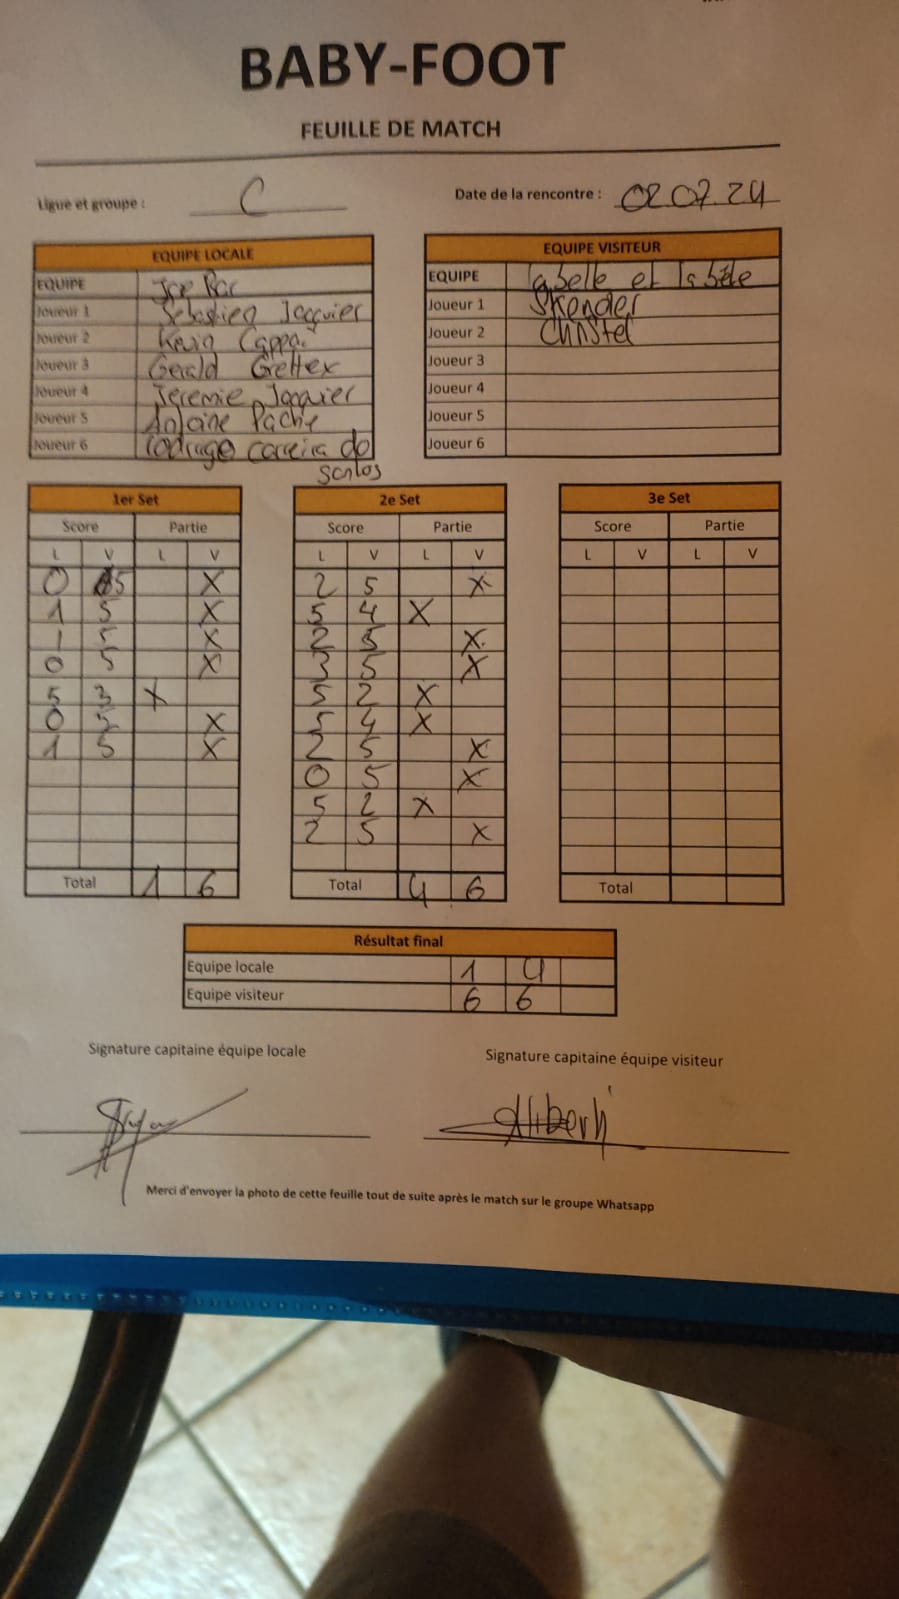 BABY-FOOT
FEUILLE DE MATCH
Ligue et groupe : C
Date de la rencontre : 02.07.24
EQUIPE LOCALE
EQUIPE Bar
Joueur 1 Sebastien Jacquier
Joueur 2 Kevin Cappai
Joueur 3 Gerald Grettex
Joueur 4 Jeremie Jacquier
Joueur 5 Antoine Pache
Joueur 6 rodrigo carreira do santos
EQUIPE VISITEUR
EQUIPE la belle et la bête
Joueur 1 Skender
Joueur 2 Christel
Joueur 3
Joueur 4
Joueur 5
Joueur 6
1er Set
Score Partie
L V L V
0 5 X
1 5 X
1 5 X
0 5 X
5 3 X
0 5 X
1 5 X
Total 1 6
2e Set
Score Partie
L V L V
2 5 X
5 4 X
2 5 X
3 5 X
5 2 X
5 4 X
2 5 X
0 5 X
5 2 X
2 5 X
Total 4 6
3e Set
Score Partie
L V L V
Total
Résultat final
Equipe locale 1 4
Equipe visiteur 6 6
Signature capitaine équipe locale
Signature capitaine équipe visiteur
Merci d'envoyer la photo de cette feuille tout de suite après le match sur le groupe Whatsapp